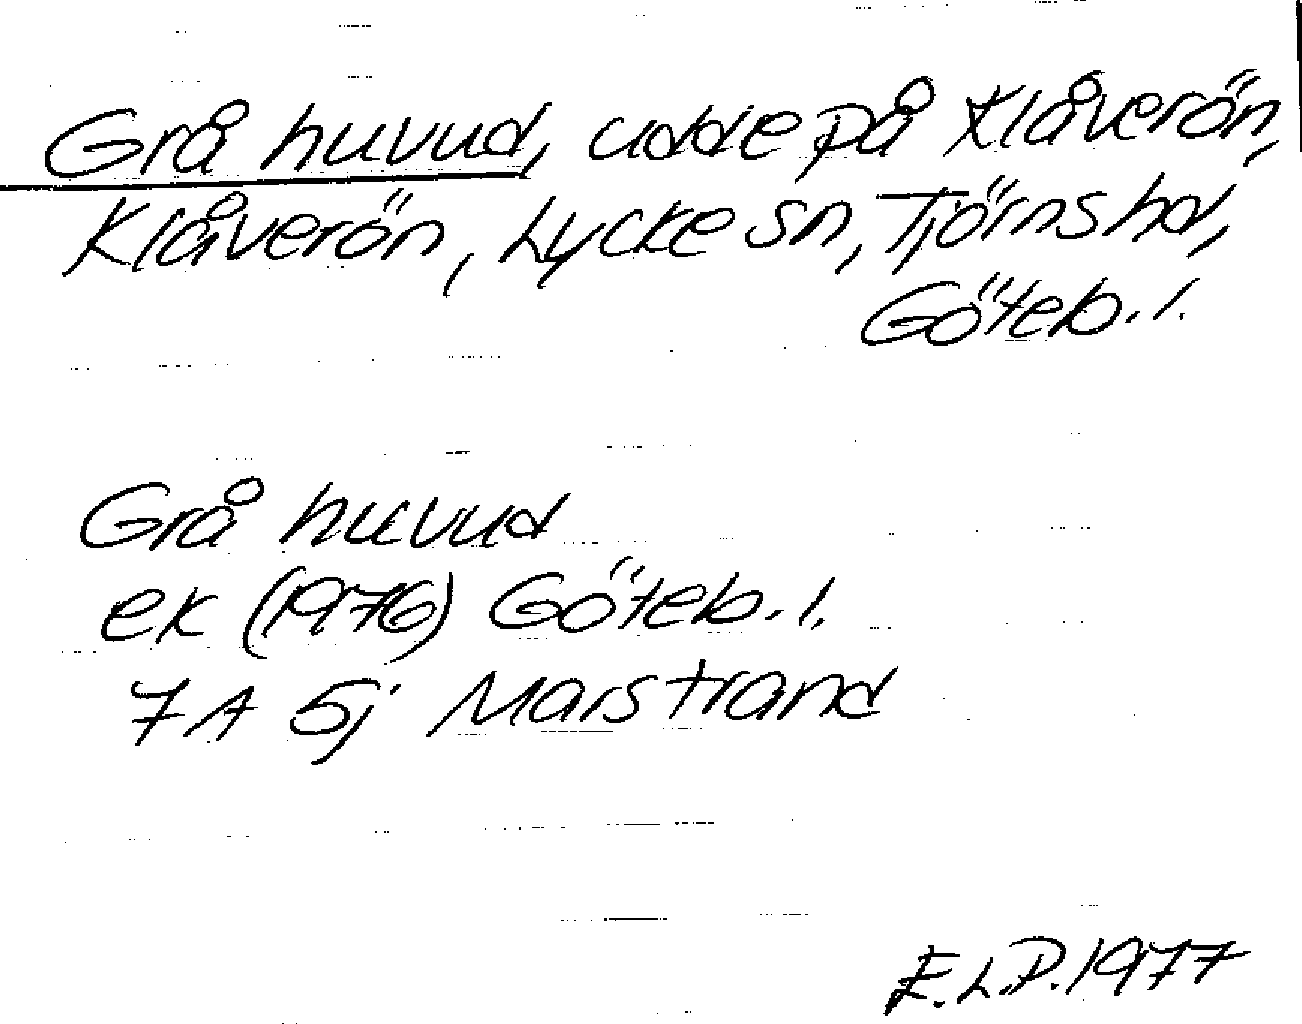 Grå huvud, udde på Klåverön,
Klåverön, Lycke sn, Tjörns hd,
Göteb. l.
Grå huvud
ek (1976) Göteb. l.
7A 5j Marstrand
E.L.P. 1977